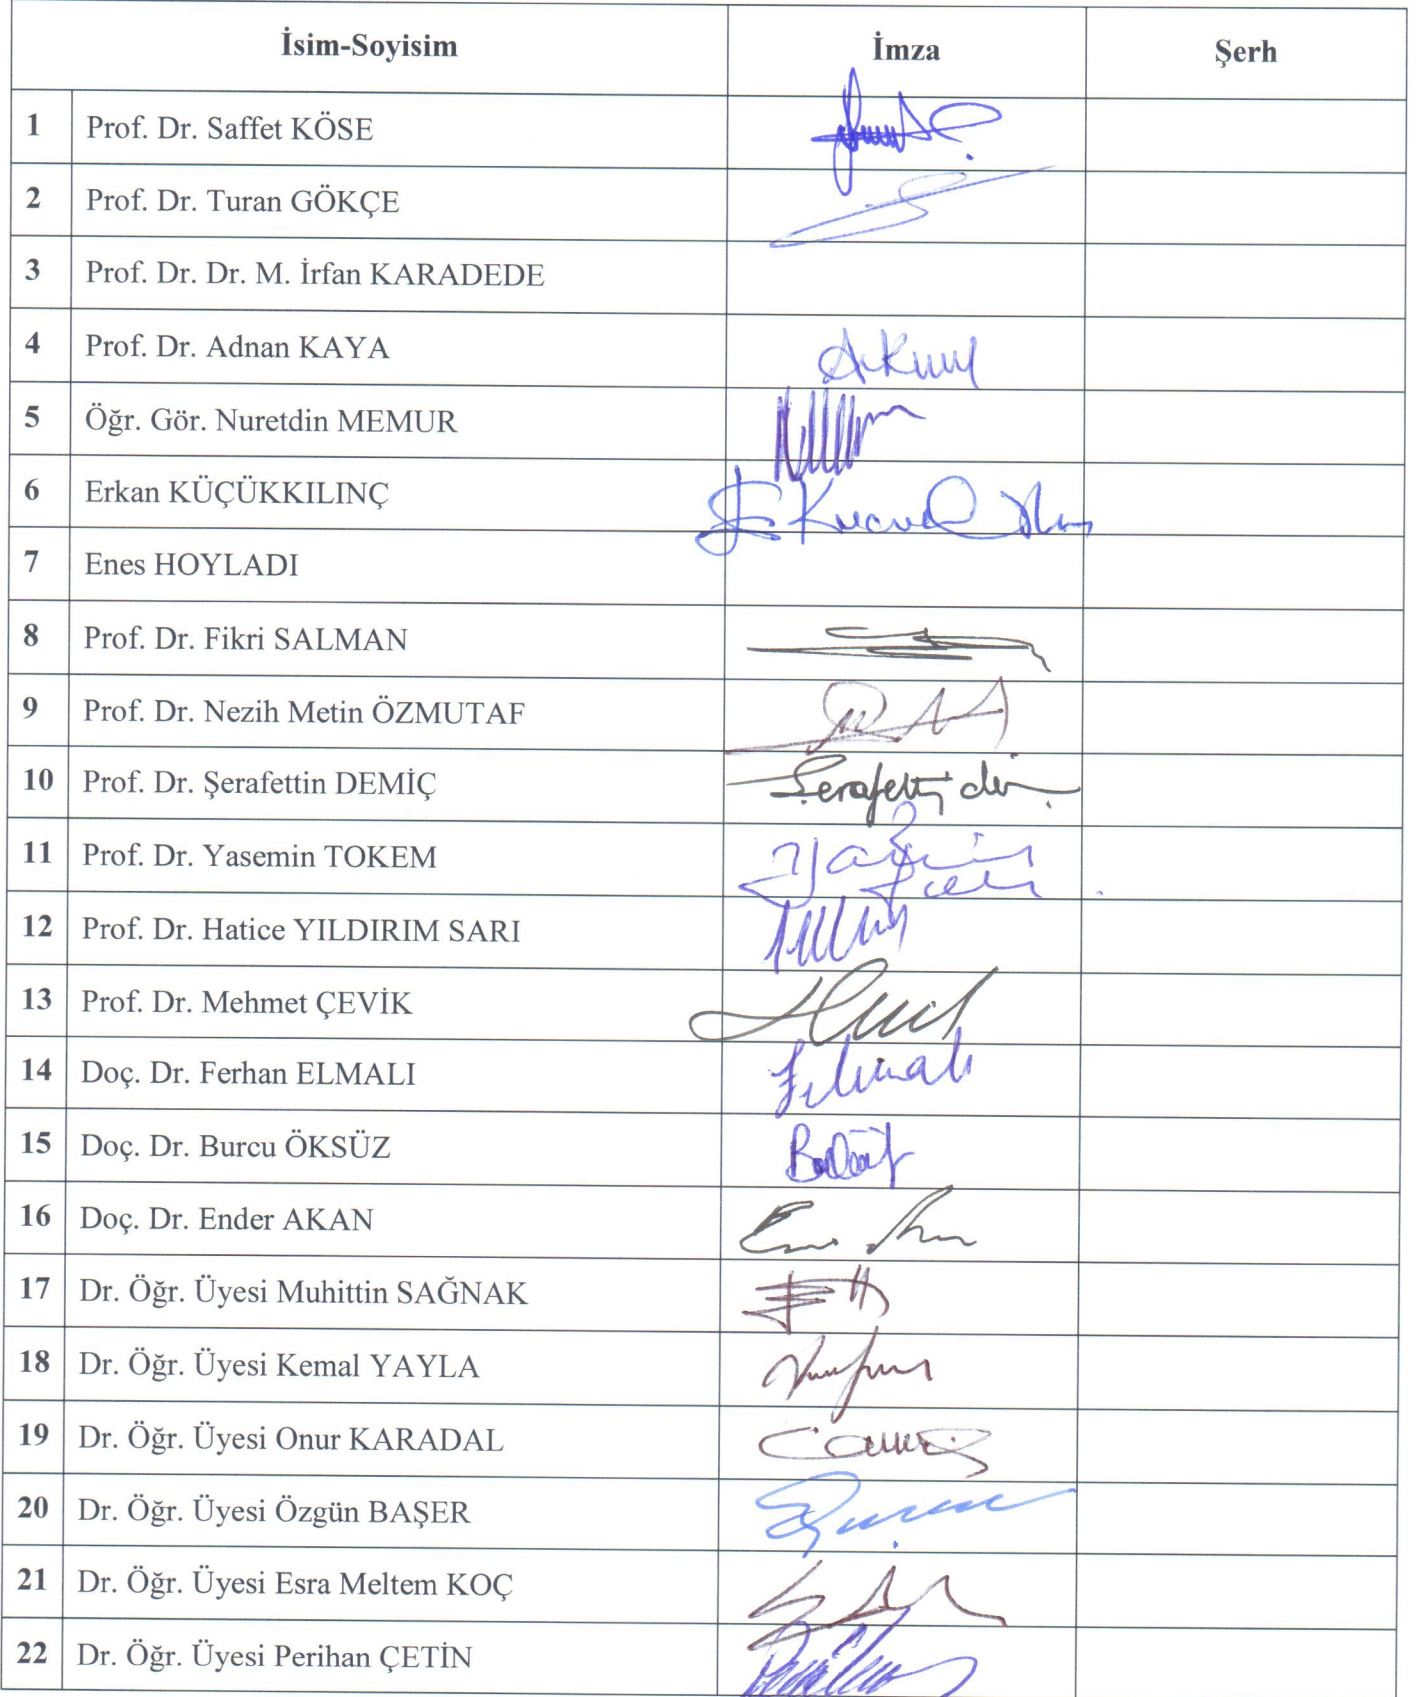 İsim-Soyisim İmza Şerh
1 Prof. Dr. Saffet KÖSE
2 Prof. Dr. Turan GÖKÇE
3 Prof. Dr. Dr. M. İrfan KARADEDE
4 Prof. Dr. Adnan KAYA
5 Öğr. Gör. Nuretdin MEMUR
6 Erkan KÜÇÜKKILINÇ
7 Enes HOYLADI
8 Prof. Dr. Fikri SALMAN
9 Prof. Dr. Nezih Metin ÖZMUTAF
10 Prof. Dr. Şerafettin DEMİÇ
11 Prof. Dr. Yasemin TOKEM
12 Prof. Dr. Hatice YILDIRIM SARI
13 Prof. Dr. Mehmet ÇEVİK
14 Doç. Dr. Ferhan ELMALI
15 Doç. Dr. Burcu ÖKSÜZ
16 Doç. Dr. Ender AKAN
17 Dr. Öğr. Üyesi Muhittin SAĞNAK
18 Dr. Öğr. Üyesi Kemal YAYLA
19 Dr. Öğr. Üyesi Onur KARADAL
20 Dr. Öğr. Üyesi Özgün BAŞER
21 Dr. Öğr. Üyesi Esra Meltem KOÇ
22 Dr. Öğr. Üyesi Perihan ÇETİN